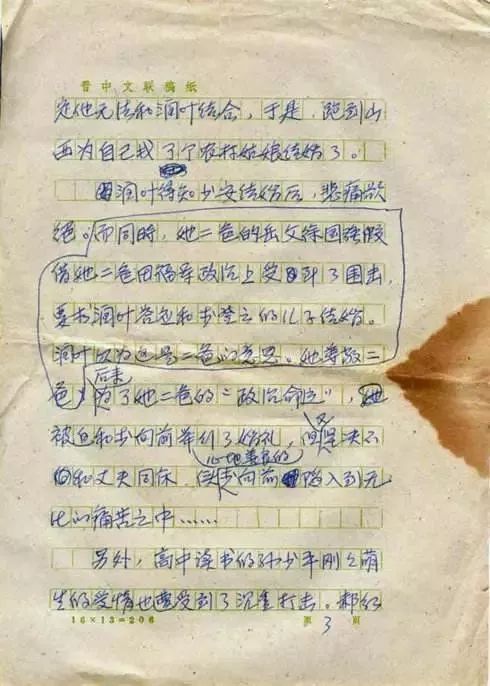 晋中文联稿纸
定他无法和润叶结合，于是，跑到山
西为自己找了个农村姑娘结婚了。
润叶得知少安结婚后，悲痛欲
绝。而同时，她二爸的岳父徐国强假
借她二爸田福军政治上受到了围击，
要求润叶答应和李登云的儿子结婚。
润叶以为这是二爸的意思。她尊敬二
后来
爸，为了她二爸的“政治命运”，
又
被迫和李向前举行了婚礼，但坚决不
心地善良的
和丈夫同床，使李向前陷入到无
比的痛苦之中……
另外，高中读书的孙少平刚刚萌
生的爱情也遭受到了沉重打击。郝红
16×13=208
第 3 页